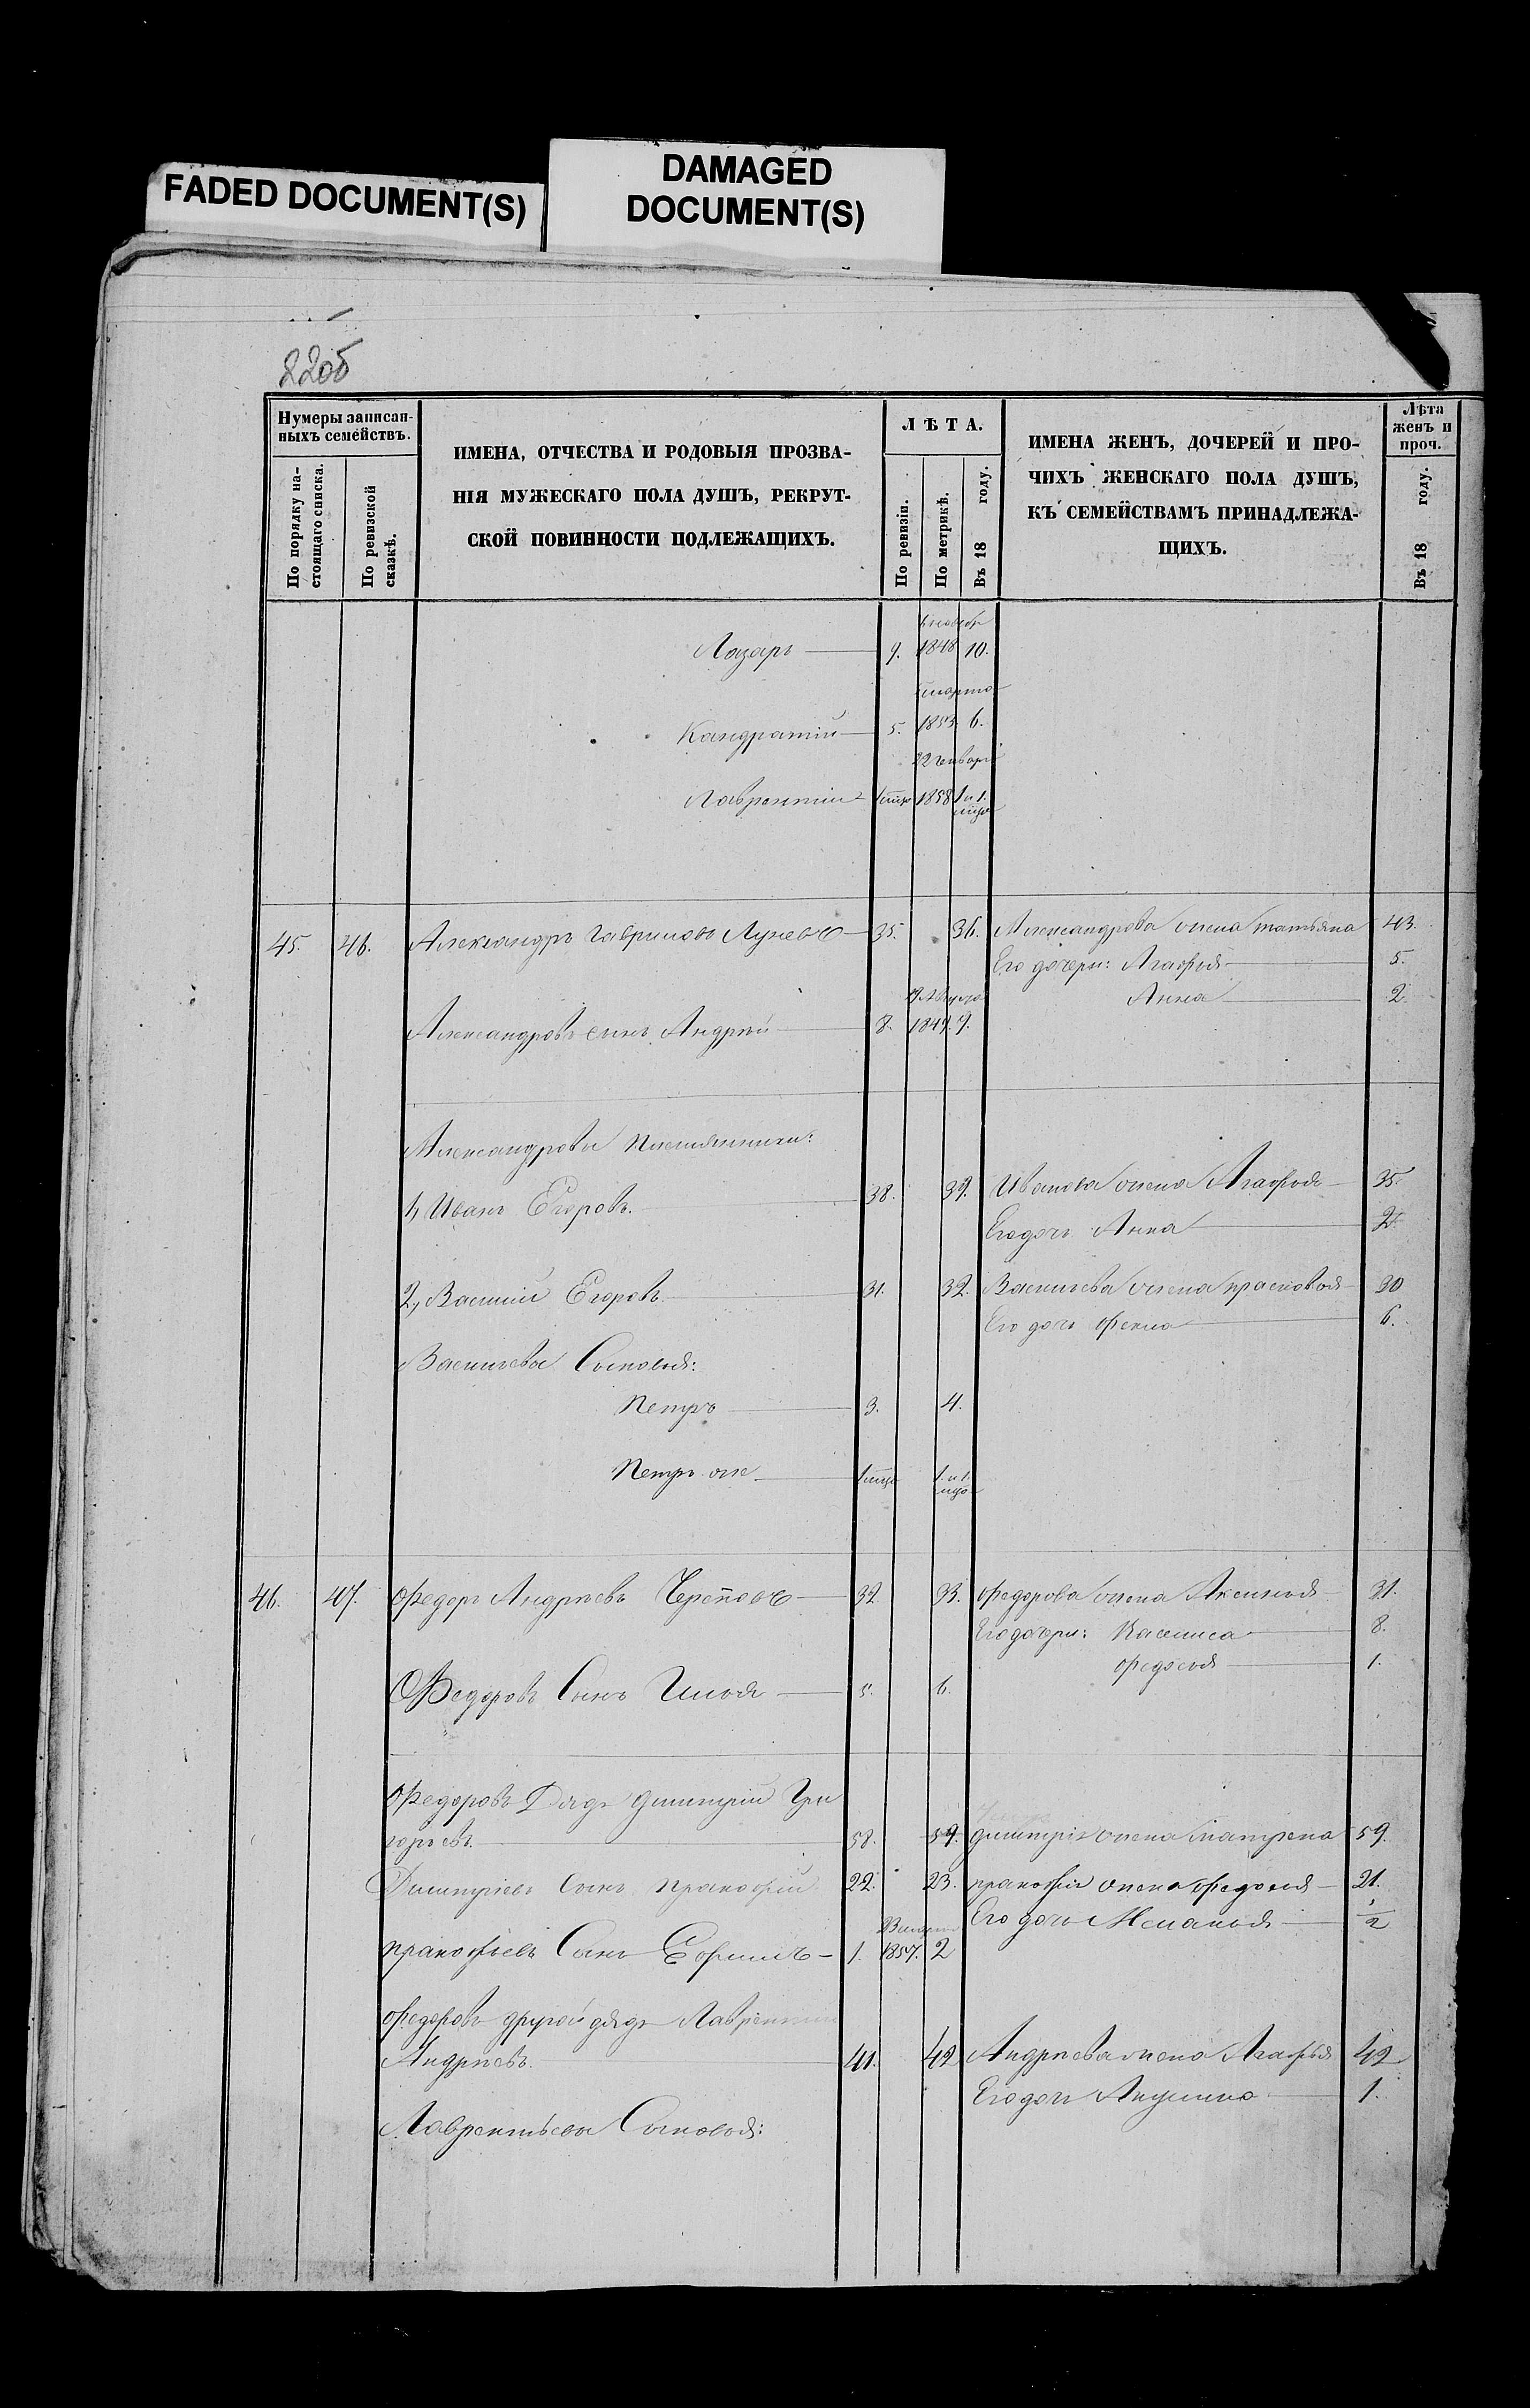 FADED DOCUMENT(S)
DAMAGED
DOCUMENT(S)
22об
Нумеры записан-
ныхъ семействъ.
По порядку на-
стоящаго списка.
По ревизской
сказкѣ.
ИМЕНА, ОТЧЕСТВА И РОДОВЫЯ ПРОЗВА-
НІЯ МУЖЕСКАГО ПОЛА ДУШЪ, РЕКРУТ-
СКОЙ ПОВИННОСТИ ПОДЛЕЖАЩИХЪ.
ЛѢТА.
По ревизіи.
По метрикѣ.
Въ 18 году.
ИМЕНА ЖЕНЪ, ДОЧЕРЕЙ И ПРО-
ЧИХЪ ЖЕНСКАГО ПОЛА ДУШЪ,
КЪ СЕМЕЙСТВАМЪ ПРИНАДЛЕЖА-
ЩИХЪ.
Лѣта
женъ и
проч.
Въ 18 году.
Лазарь 9. 1848 10.
марта
Кандратій 5. 1853 6.
22 генваря
Лаврентій 1 мца 1858 1 и 1.
мца
45. 46. Александръ Гавриловъ Луневъ 35. 36. Александрова жена Татьяна 43.
Его дочери: Агафья 5.
Анна 2.
Августа
Александровъ сынъ Андрей 8. 1849. 9.
Александровы племянники:
1, Иванъ Егоровъ. 38. 39. Иванова жена Агафья 35.
Его дочь Анна 2.
2, Василій Егоровъ 31. 32. Васильева жена прасковья 30
Его дочь Фекла 6.
Васильевы Сыновья:
Петръ 3. 4.
Петръ же 1 мца 1. и 1.
мца
46. 47. Федоръ Андреевъ 32. 33. Федорова жена Аксинья 31.
Его дочери: Василиса 8.
Федосья 1.
Федоровъ Сынъ Илья 5. 6.
Федоровъ Дядя Дмитрій Гри
горьевъ. 58. 59. дмитрія жена Матрена 59.
Дмитріевъ Сынъ Пракофій 22. 23. пракофія жена Федосья 21.
Его дочь Меланья 1/2
пракофьевъ Сынъ Ефимъ 1. 1857. 2
Федоровъ другой дядя Лаврентій
Андреевъ. 41. 42 Андреева жена Агафья 42
Его дочь Акулина 1.
Лаврентьевы Сыновья: